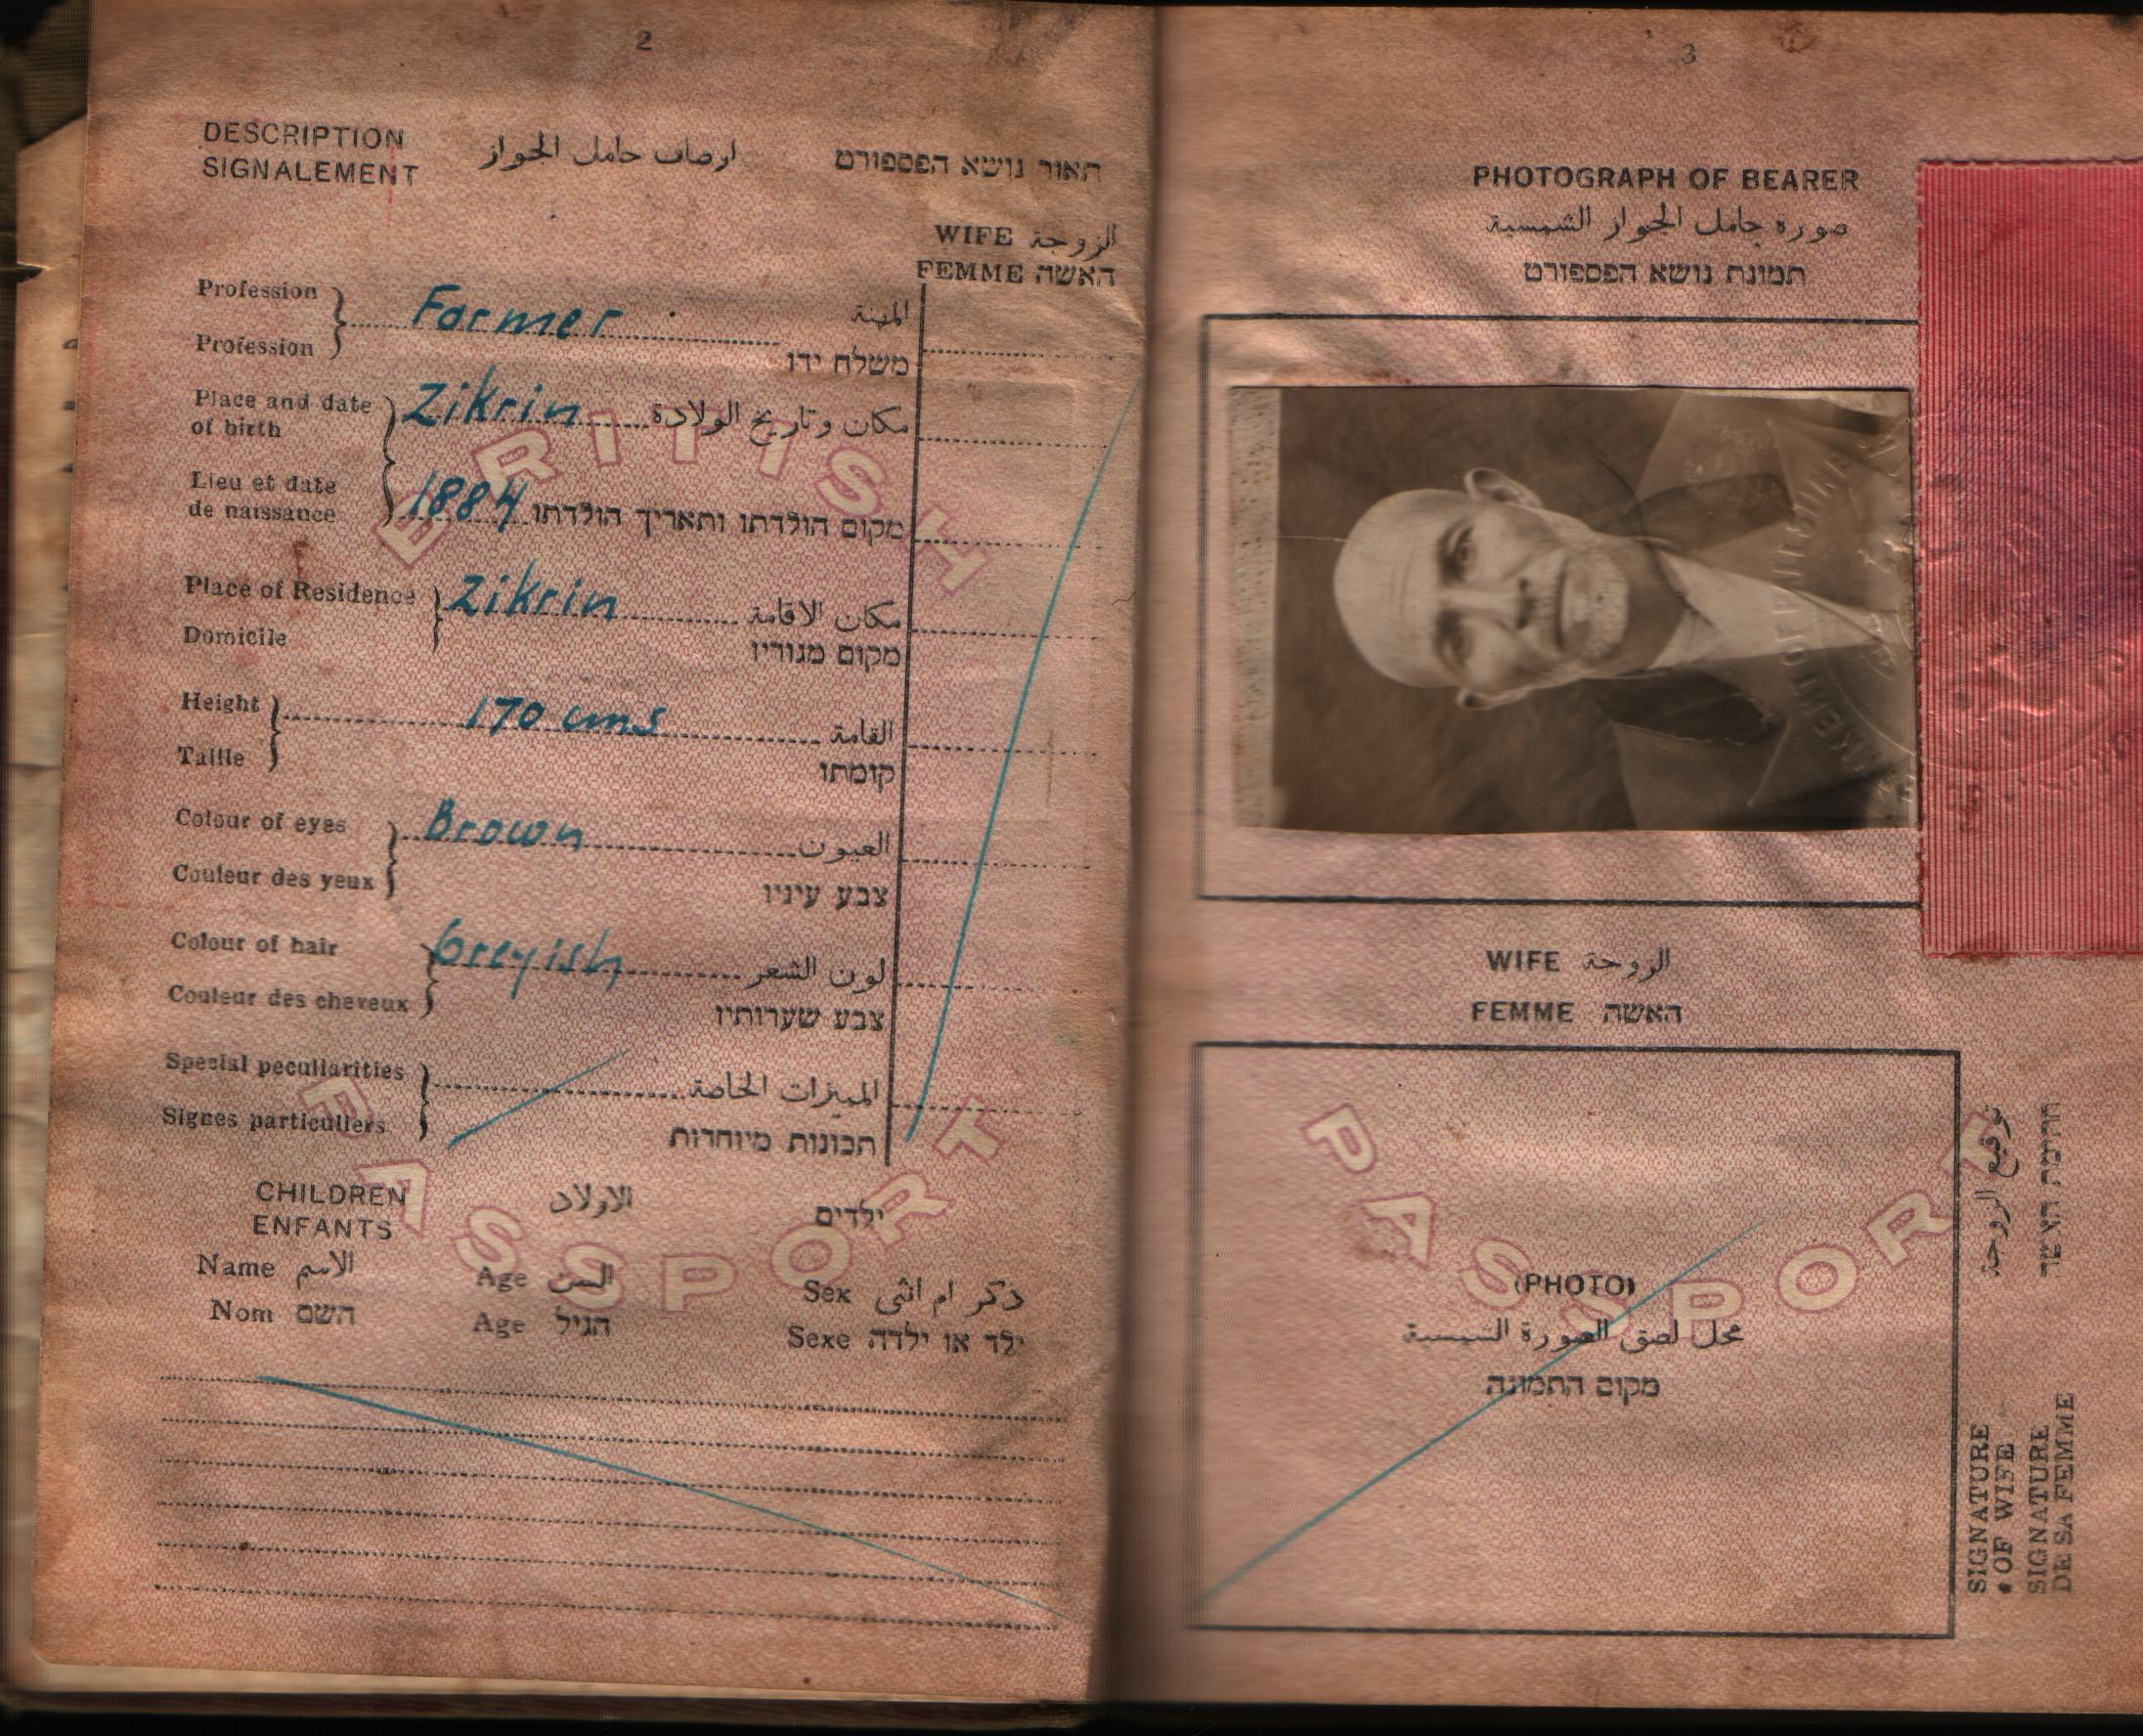 2
DESCRIPTION اوصاف حامل الجواز תאור נושא הפספורט
SIGNALEMENT
WIFE الزوجة
FEMME האשה
Profession Farmer المهنة
Profession משלח ידו
Place and date of birth Zikrin مكان وتاريخ الولادة
Lieu et date de naissance 1884 מקום הולדתו ותאריך הולדתו
Place of Residence Zikrin مكان الاقامة
Domicile מקום מגוריו
Height 170 cms القامة
Taille קומתו
Colour of eyes Brown العيون
Couleur des yeux צבע עיניו
Colour of hair Greyish لون الشعر
Couleur des cheveux צבע שערותיו
Special peculiarities المميزات الخاصة
Signes particuliers תכונות מיוחדות
CHILDREN الاولاد ילדים
ENFANTS
Name الاسم Age السن Sex ذكر ام انثى
Nom השם Age הגיל Sexe ילד או ילדה
BRITISH
PASSPORT
3
PHOTOGRAPH OF BEARER
صورة حامل الجواز الشمسية
תמונת נושא הפספורט
WIFE الزوجة
FEMME האשה
(PHOTO)
محل لصق الصورة الشمسية
מקום התמונה
PASSPORT
SIGNATURE OF WIFE توقيع الزوجة
SIGNATURE DE SA FEMME חתימת האשה